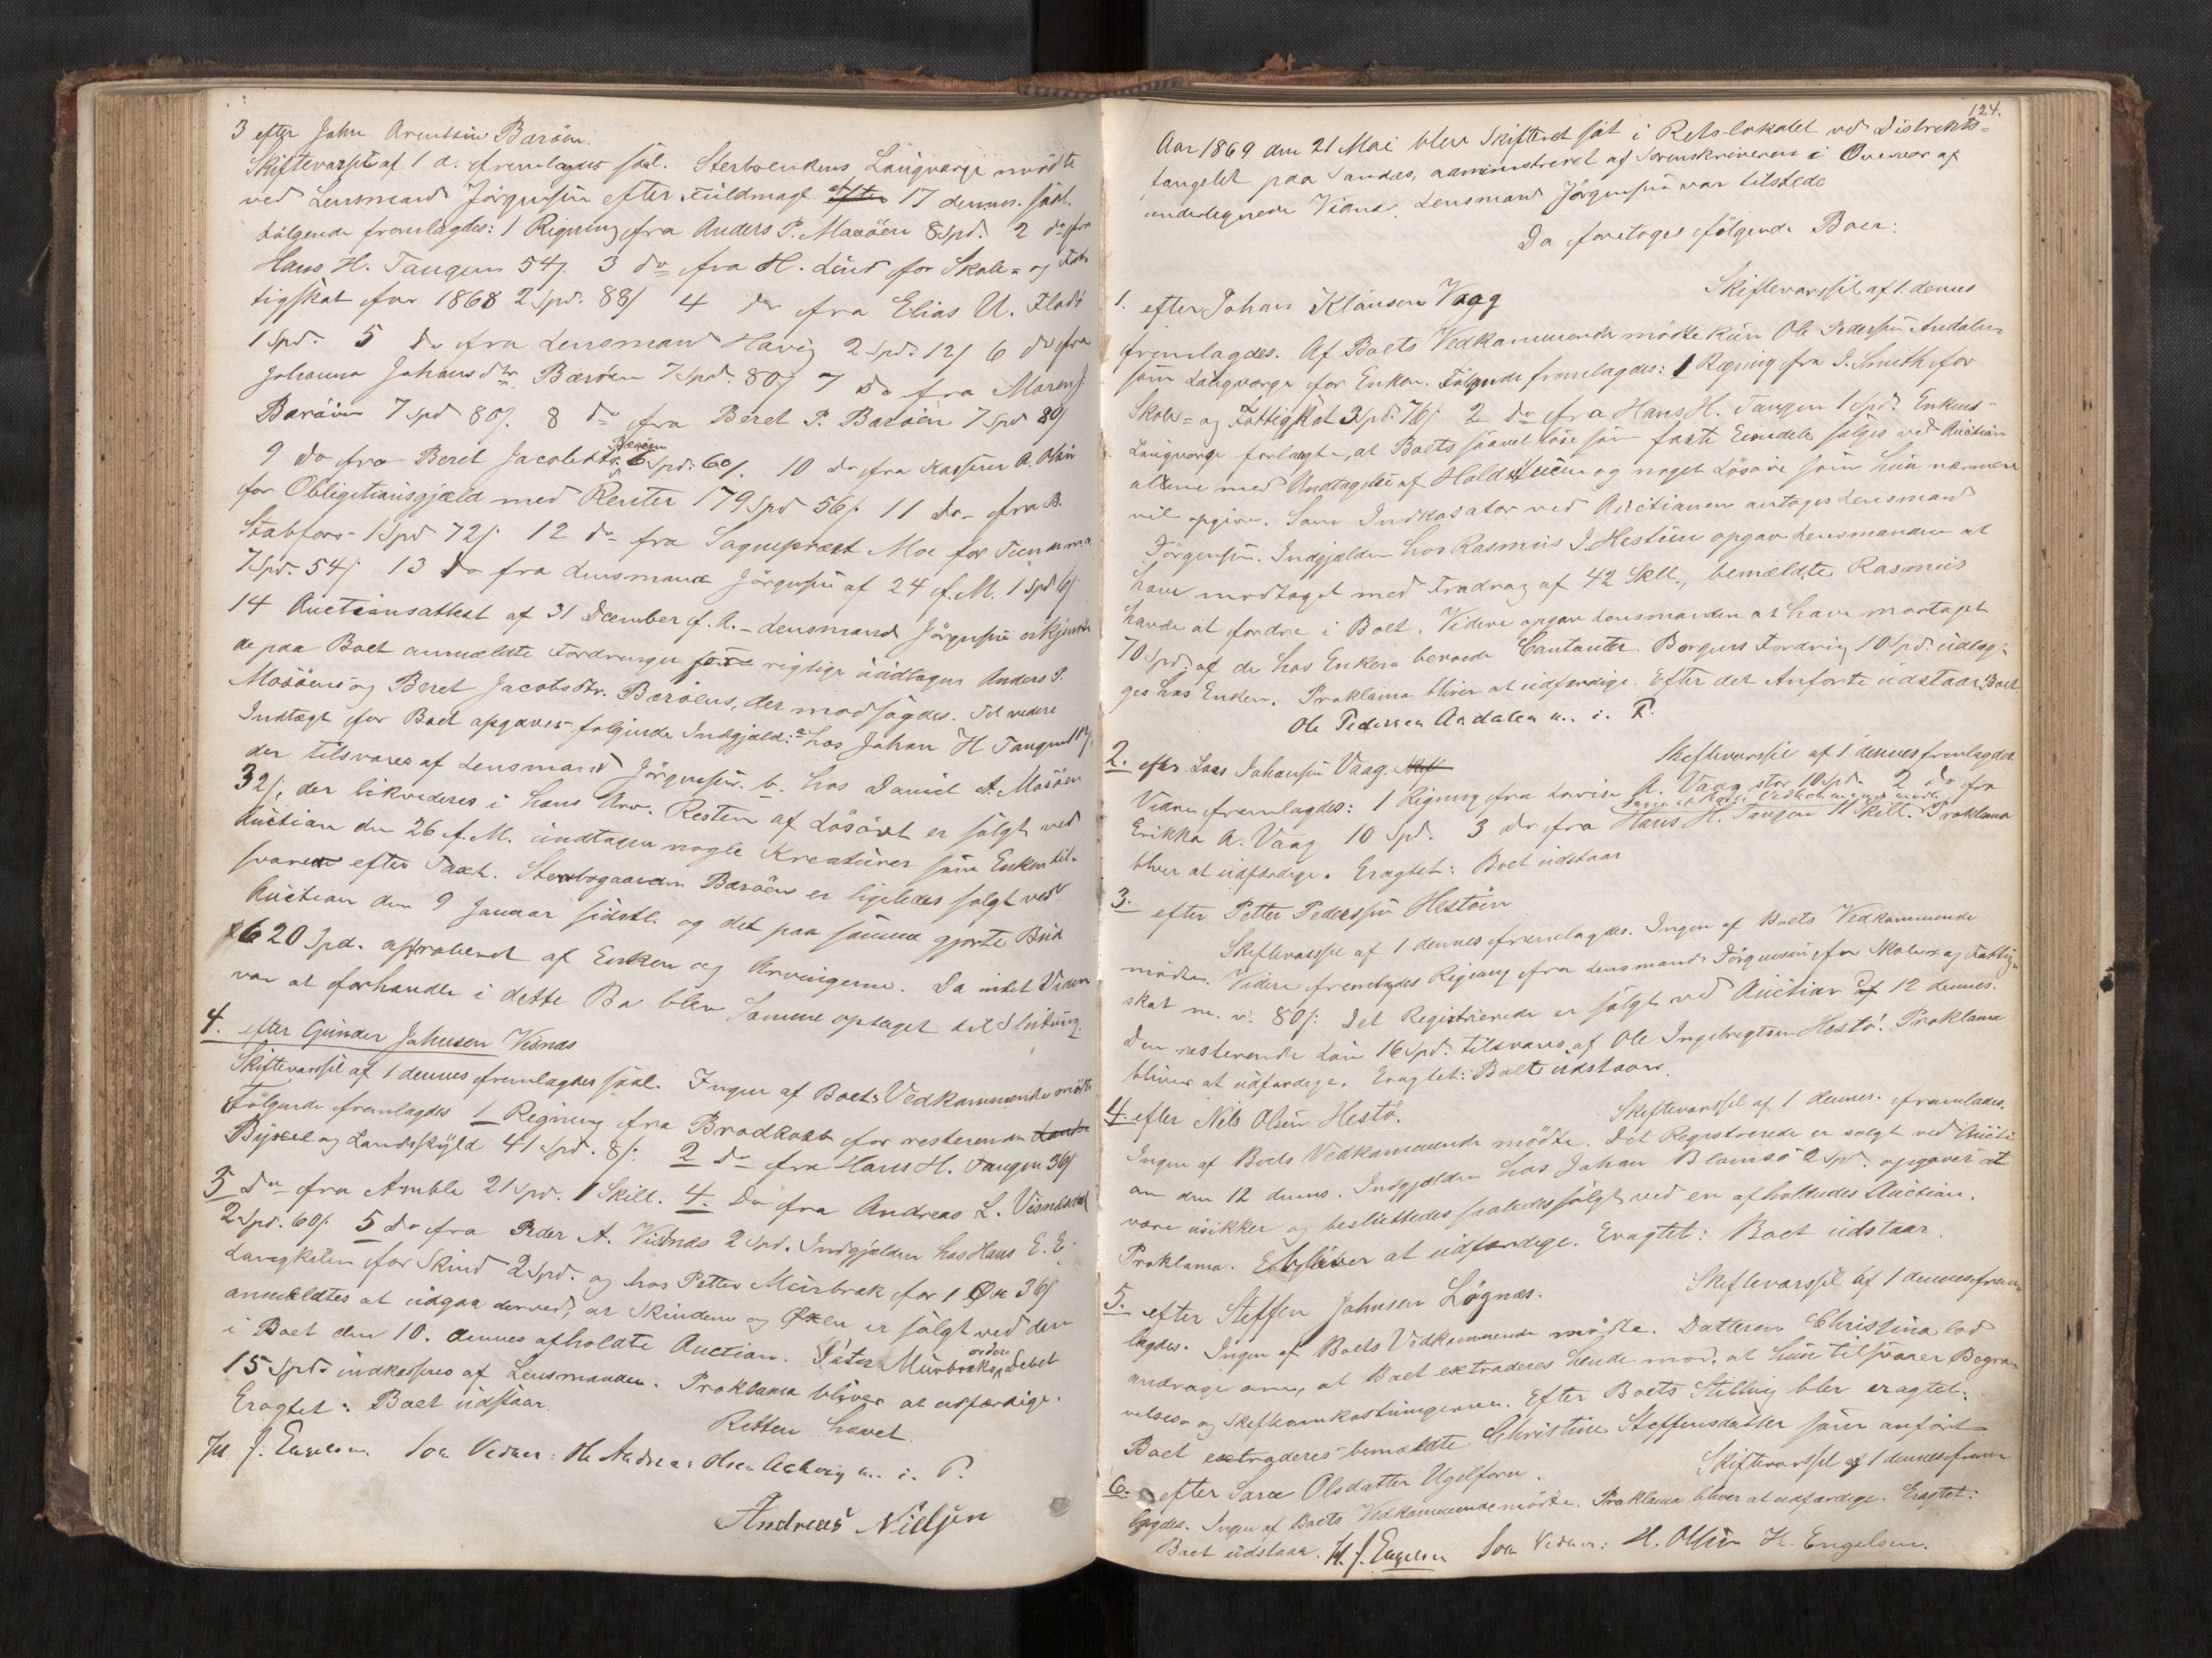 3 efter John Arentsen Barøen.
Skiftevarsel af 1 d. fremlagdes saal. Sterboenkens Laugværge mødte
ved Lensmand Jörgensen efter Fuldmagt af 17 dennes. saal.
Følgende fremlagdes: 1 Regning fra Anders P. Masöen 8 Spd. 2 do fra
Hans H. Tangen 54ʃ. 3 do fra H. Lind for Skole= og Fat-
tigskat for 1868 2 Spd. 88ʃ 4 do fra Elias A. Flatö
1 Spd. 5 do fra Lensmand Havig 2 Spd. 12ʃ 6 do fra
Johanna Johansdtr Barøen 7 Spd. 80ʃ 7 do fra Maren J.
Baröen 7 Spd 80ʃ. 8 do fra Beret P. Baröen 7 Spd 89ʃ
9 do fra Beret Jacobsdtr. Barøen 6 Spd: 60ʃ. 10 do fra Kasserer A. Olsen
for Obligationsgjæld med Renter 179 Spd 56ʃ. 11 do fra B.
Stabfors 1 Spd 72ʃ. 12 do fra Sognepræst Moe for Tiende m. m.
7 Spd. 54ʃ. 13 do fra Lensmand Jörgensen af 24 f. M. 1 Spd 6ʃ
14 Auctionsattest af 31 December f. A. - Lensmand Jörgensen erkjendte
de paa Boet anmeldte Fordringer for rigtige undtagen Anders P.
Masöens og Beret Jacobsdtr. Baröens, der modsagdes. Til videre
Indtægt for Boet opgaves følgende Indgjæld: a. hos Johan H. Tangen 112ʃ,
der tilsvares af Lensmand Jörgensen. b. hos Daniel A. Masöen
32ʃ, der likvideres i hans Arv. Resten af Løsöret er solgt ved
Auction den 26 f. M. undtagen nogle Kreaturer som Enken til-
svarer efter Taxt. Sterbogaarden Baröen er ligeledes solgt ved
Auction den 9 Januar sidstl. og det paa samme gjorte Bud
620 Spd. approberet af Enken og Arvingerne. Da intet Videre
var at forhandle i dette Bo blev Samme optaget til Slutning.
4. efter Gunder Johnsen Visnæs
Skiftevarsel af 1 dennes fremlagdes saal. Ingen af Boets Vedkommende mødte
Følgende fremlagdes 1 Regning fra Brodkorb for resterende
Bygsel og Landskyld 41 Spd. 8ʃ. 2 do fra Hans H. Tangen 36ʃ
3 do fra Amble 21 Spd. 1 Skill. 4. Do fra Andreas L. Visnæs
2 Spd. 60ʃ. 5 do fra Peder A. Visnæs 2 Spd. Indgjælden hos Hans E. E.
Langkilen for Skind 2 Spd. og hos Petter Murbræk for 1 Oxe 36ʃ
anmeldtes at udgaa derved, at Skindene og Oxen er solgt ved den
i Boet den 10. dennes afholdte Auction. Peter Murbræks ordre Debet
15 Spd. indkasseres af Lensmanden. Proklama bliver at udfærdige.
Eragtet: Boet udstaar.
Retten hævet
H. J. Engelsen. Som Vidner: Ole Andreas Olsen m. i. P.
Andreas Nielsen
124.
Aar 1869 den 21 Mai blev Skifteret sat i Retslokalet ved Distrikts=
fængslet paa Sandnes, administreret af Sorenskriveren i Overvær af
undertegnede Vidner. Lensmand Jörgensen var tilstede
Da foretoges følgende Boer:
Skiftevarsel af 1. dennes
1. efter Johan Klausen Vaag
fremlagdes. Af Boets Vedkommende mødte kun Ole Pedersen Aadalen
som Laugværge for Enken. Følgende fremlagdes: 1 Regning fra J. Smith for
Skole= og Fattigskat 3 Spd. 76ʃ. 2 do fra Hans H. Tangen 1 Spd. Enkens
Laugværge forlangte, at Boets saavel løse som faste Eiendele sælges ved Auction
altene med Undtagelse af og noget Løsöre som hun nærmere
vil opgive. Som Indkasator ved Auctionen antages Lensmand
Jörgensen. Indgjælden hos Rasmus J. Hestöen opgav Lensmanden at
have modtaget med Fradrag af 42 Skill., bemældte Rasmus
havde at fordre i Boet. Videre opgav Lensmanden at have modtaget
70 Spd. af de hos Enken beroende Contanter. Borgens Fordring 10 Spd. udtag-
ges hos Enken. Proklama bliver at udfærdige. Efter det Anførte udstaar Boet
Ole Pedersen Aadalen m. i. P.
Skiftevarsel af 1 dennes fremlagdes.
2. efter Lars Johansen Vaag.
Videre fremlagdes: 1 Regning fra Lovise A. Vaag stor 10 Spd. 2 do fra
Ingen af Boets Vedkommende mødte
Erikka A. Vaag 10 Spd. 3 do fra Hans H. Tangen 11 Skill. Proklama
bliver at udfærdige. Eragtet: Boet udstaar
3. efter Petter Pedersen Hestöen
Skiftevarsel af 1 dennes fremlagdes. Ingen af Boets Vedkommende
mødte. Videre fremlagdes Regning fra Lensmand Jörgensen for Skole= og Fattig-
skat m. v. 80ʃ. Det Registrerede er solgt ved Auction af 12 dennes.
Den resterende Løn 16 Spd. tilsvares af Ole Ingebrigtsen Hestö. Proklama
bliver at udfærdige. Eragtet: Boet udstaar.
Skiftevarsel af 1 dennes. fremlades.
4. efter Nils Olsen Hestö.
Ingen af Boets Vedkommende mødte. Det Registrerede er solgt ved Aucti-
on den 12 dennes. Indgjælden hos Johan Blomsö 2 Spd. opgaves at
være usikker og besluttedes saaledes solgt ved en afholdendes Auction.
Proklama. bliver at udfærdige. Eragtet: Boet udstaar.
Skiftevarsel af 1 dennes frem-
5. efter Steffen Johnsen Løgnæs.
lagdes. Ingen af Boets Vedkommende mødte. Datteren Christina lod
andrage om, at Boet extraderes hende mod, at hun tilsvarer Begra-
velses- og Skifteomkostningerne. Efter Boets Stilling blev eragtet:
Boet extraderes bemældte Christine Steffensdatter som anført
Skiftevarsel af 1 dennes frem-
6. efter Sara Olsdatter Ugelforn.
lagdes. Ingen af Boets Vedkommende mødte. Proklama bliver at udfærdige. Eragtet:
Boet udstaar. H. J. Engelsen Som Vidner: H. Olsen H. Engelsen.